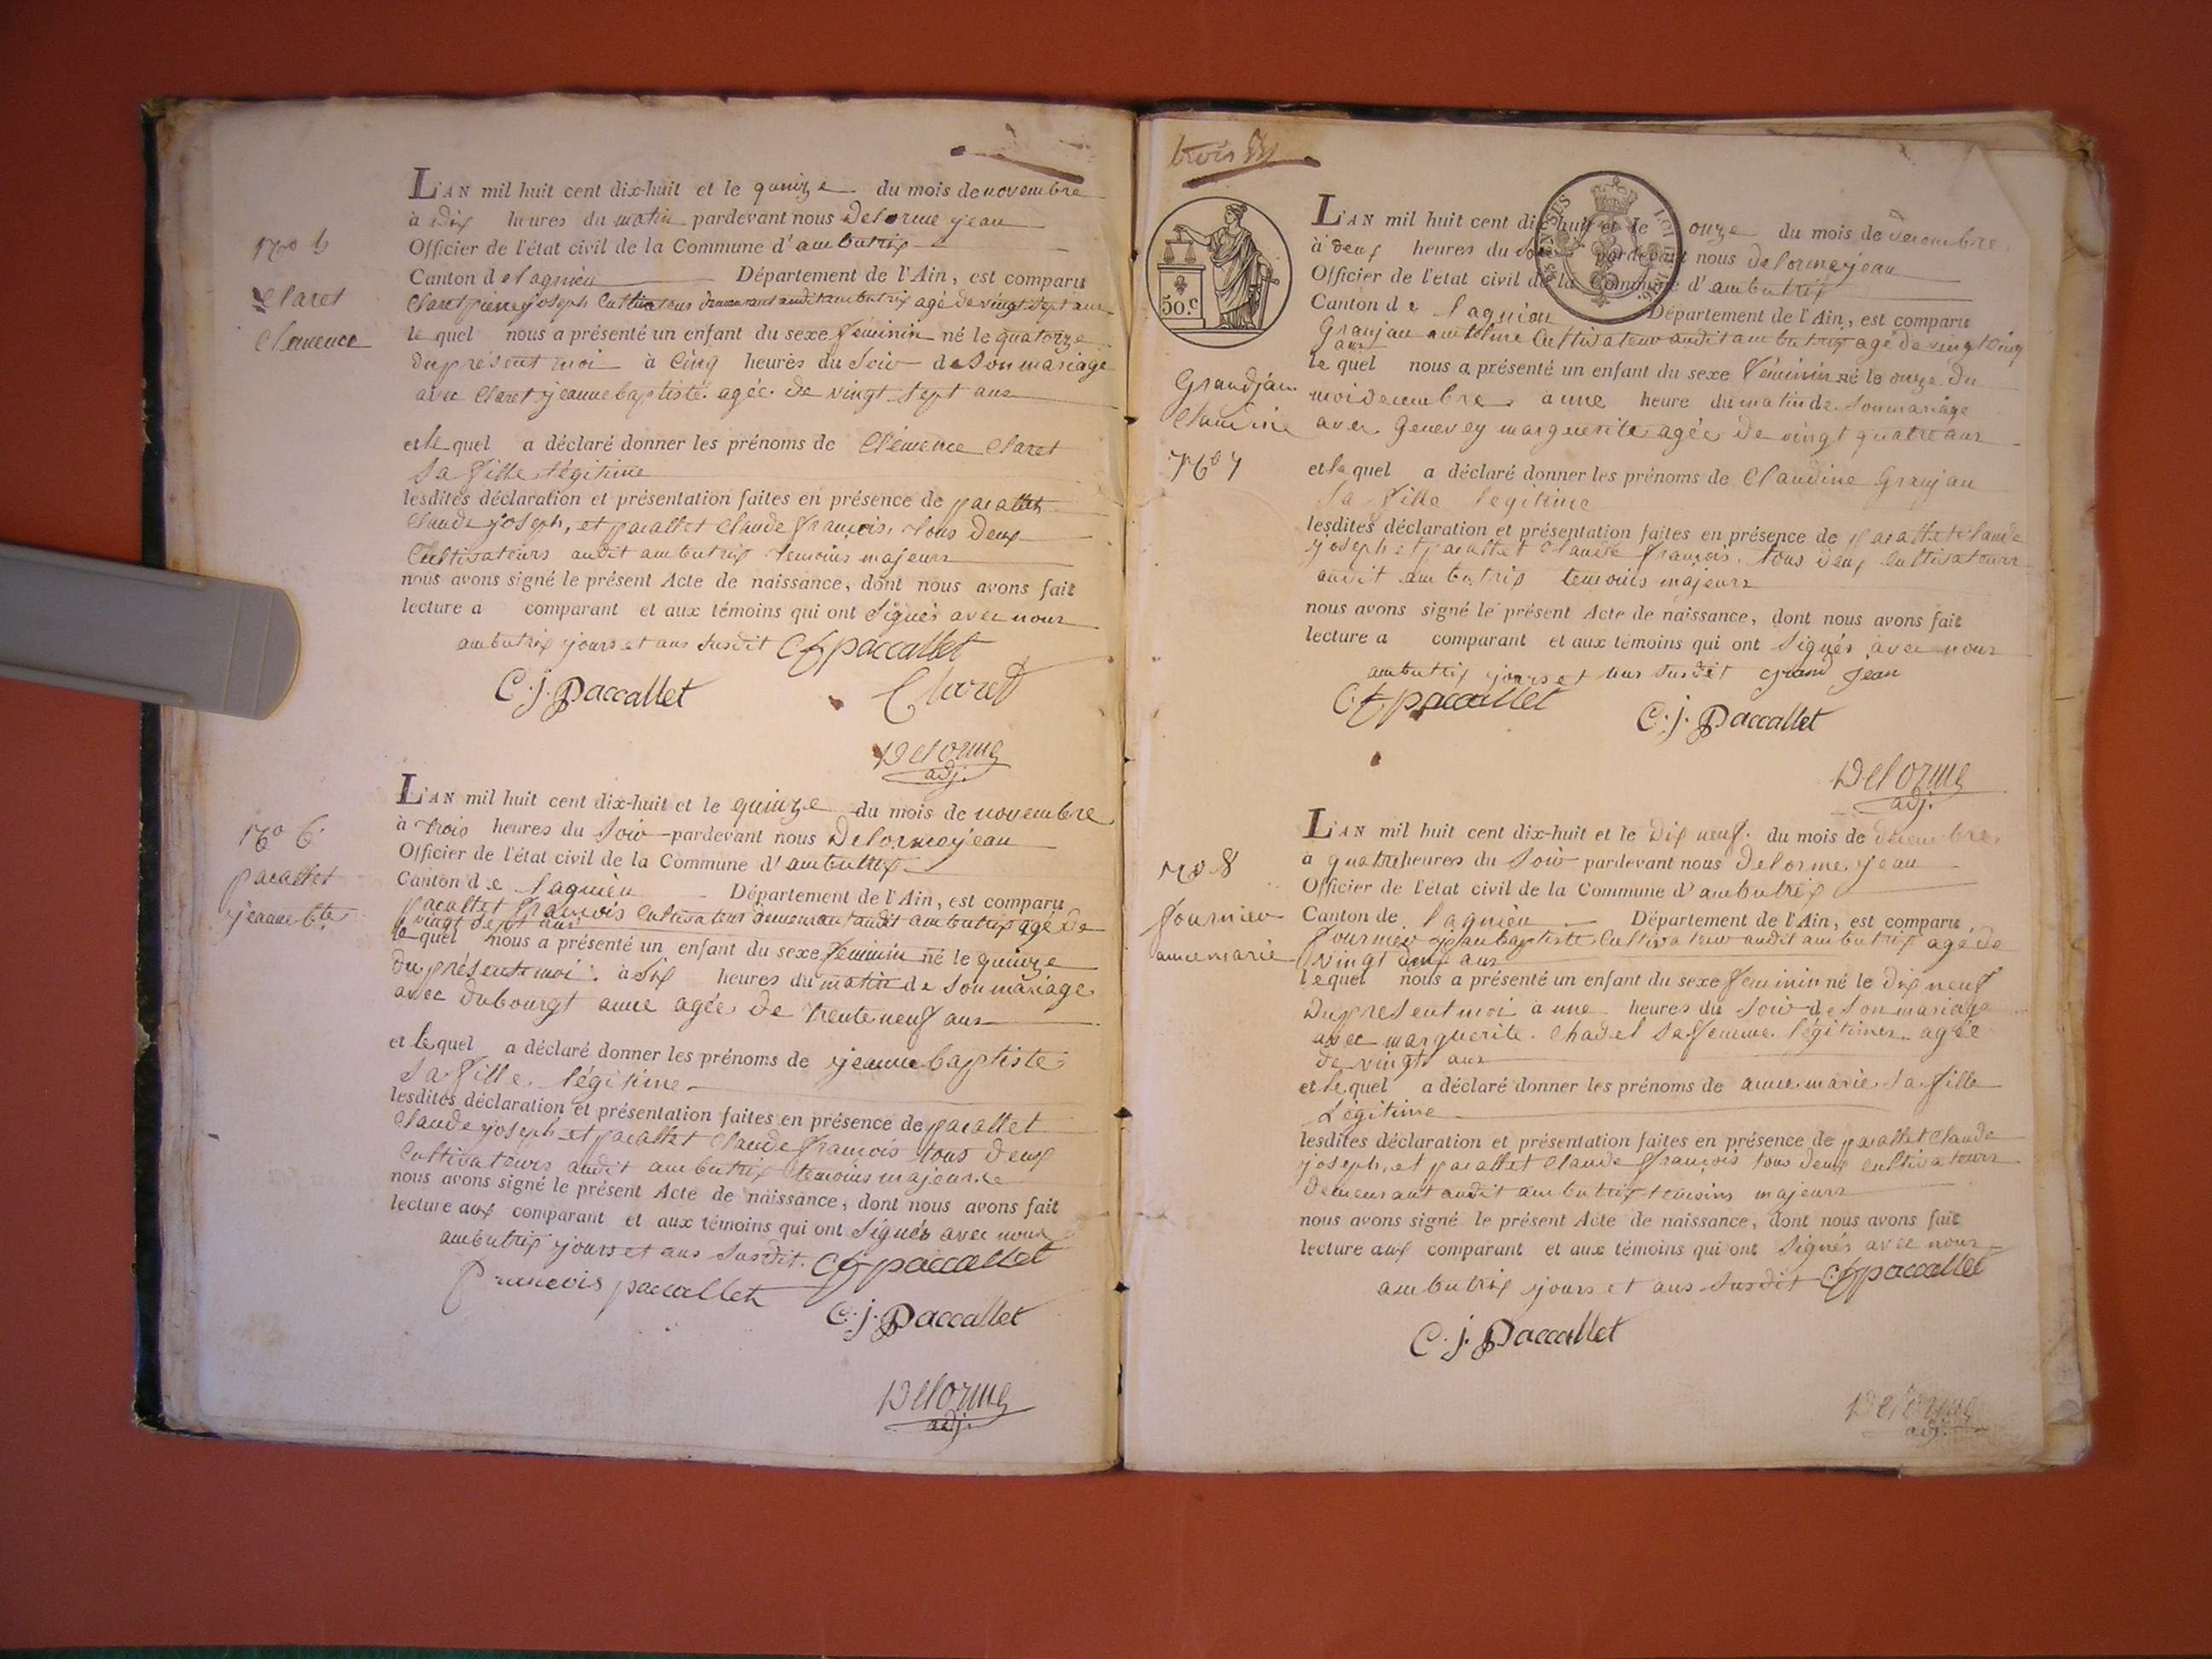 L'AN mil huit cent dix-huit et le quinze du mois de novembre
à dix heures du matin pardevant nous Delorme jean
Officier de l'état civil de la Commune d'ambutrix
Canton de lagnieu Département de l'Ain, est comparu
Claret pierre joseph Cultivateur demeurant audit ambutrix agé de vingt sept ans
le quel nous a présenté un enfant du sexe féminin né le quatorze
du present moi à Cinq heures du Soir de Son mariage
avec Claret jeanne baptiste agée de vingt Sept ans
et le quel a déclaré donner les prénoms de Clémence Claret
Sa fille légitime
lesdites déclaration et présentation faites en présence de pacallet
Claude joseph, et pacallet Claude françois, tous deux
Cultivateurs audit ambutrix temoins majeurs
nous avons signé le présent Acte de naissance, dont nous avons fait
lecture a comparant et aux témoins qui ont Signés avec nous
ambutrix jours et ans Susdit C f paccallet
C. j. Paccallet Claret
Delorme
adj.
Claret
Clemence
L'AN mil huit cent dix-huit et le quinze du mois de novembre
à trois heures du Soir pardevant nous Delorme jean
Officier de l'état civil de la Commune d'ambutrix
Canton de lagnieu Département de l'Ain, est comparu
pacallet françois Cultivateur demeurant audit ambutrix agé de
vingt sept ans
le quel nous a présenté un enfant du sexe féminin né le quinze
du présent moi à Six heures du matin de Son mariage
avec dubourgt anne agée de trente neuf ans
et le quel a déclaré donner les prénoms de jeanne baptiste
Sa fille légitime
lesdites déclaration et présentation faites en présence de pacallet
Claude joseph et pacallet Claude françois tous deux
Cultivateurs audit ambutrix temoins majeurs
nous avons signé le présent Acte de naissance, dont nous avons fait
lecture aux comparant et aux témoins qui ont Signés avec nous
ambutrix jours et ans Susdit. C f paccallet
francois paccallet
C. j. Paccallet
Delorme
adj.
No 6
pacallet
jeanne bte
trois
50.c
L'AN mil huit cent dix-huit et le onze du mois de decembre
à deux heures du Soir pardevant nous delorme jean
Officier de l'état civil de la Commune d'ambutrix
Canton de lagnieu Département de l'Ain, est comparu
Granjan antelme Cultivateur audit ambutrix agé de vingt Cinq
ans
le quel nous a présenté un enfant du sexe féminin né le onze du
moi decembre a une heure du matin de Son mariage
avec Genevey marguerite agée de vingt quatre ans
et le quel a déclaré donner les prénoms de Claudine Granjan
Sa fille legitime
lesdites déclaration et présentation faites en présence de pacallet Claude
joseph et pacallet Claude françois tous deux Cultivateurs
audit ambutrix temoins majeurs
nous avons signé le présent Acte de naissance, dont nous avons fait
lecture a comparant et aux témoins qui ont Signés avec nous
ambutrix jours et ans Susdit grand jean
C. f. paccallet C. j. Paccallet
Delorme
adj.
Grandjan
Claudine
No 7
L'AN mil huit cent dix-huit et le Dix neuf du mois de decembre
à quatre heures du Soir pardevant nous Delorme jean
Officier de l'état civil de la Commune d'ambutrix
Canton de lagnieu Département de l'Ain, est comparu
fournier jean baptiste Cultivateur audit ambutrix agé de
vingt ans
lequel nous a présenté un enfant du sexe feminin né le Dix neuf
Du present moi a une heures du Soir de Son mariage
avec marguerite Chadel Sa femme légitime agée
de vingt ans
et le quel a déclaré donner les prénoms de anne marie Sa fille
Légitime
lesdites déclaration et présentation faites en présence de pacallet Claude
joseph, et pacallet Claude françois tous deux cultivateurs
demeurant audit ambutrix temoins majeurs
nous avons signé le présent Acte de naissance, dont nous avons fait
lecture aux comparant et aux témoins qui ont Signés avec nous
ambutrix jours et ans Susdit C f paccallet
C. j. Paccallet
Delorme
adj.
No 8
fournier
anne marie